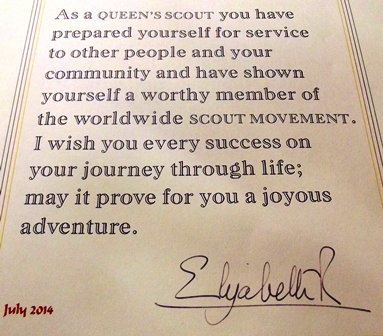 As a QUEEN'S SCOUT you have
prepared yourself for service
to other people and your
community and have shown
yourself a worthy member of
the worldwide SCOUT MOVEMENT.
I wish you every success on
your journey through life;
may it prove for you a joyous
adventure.
Elizabeth R
July 2014